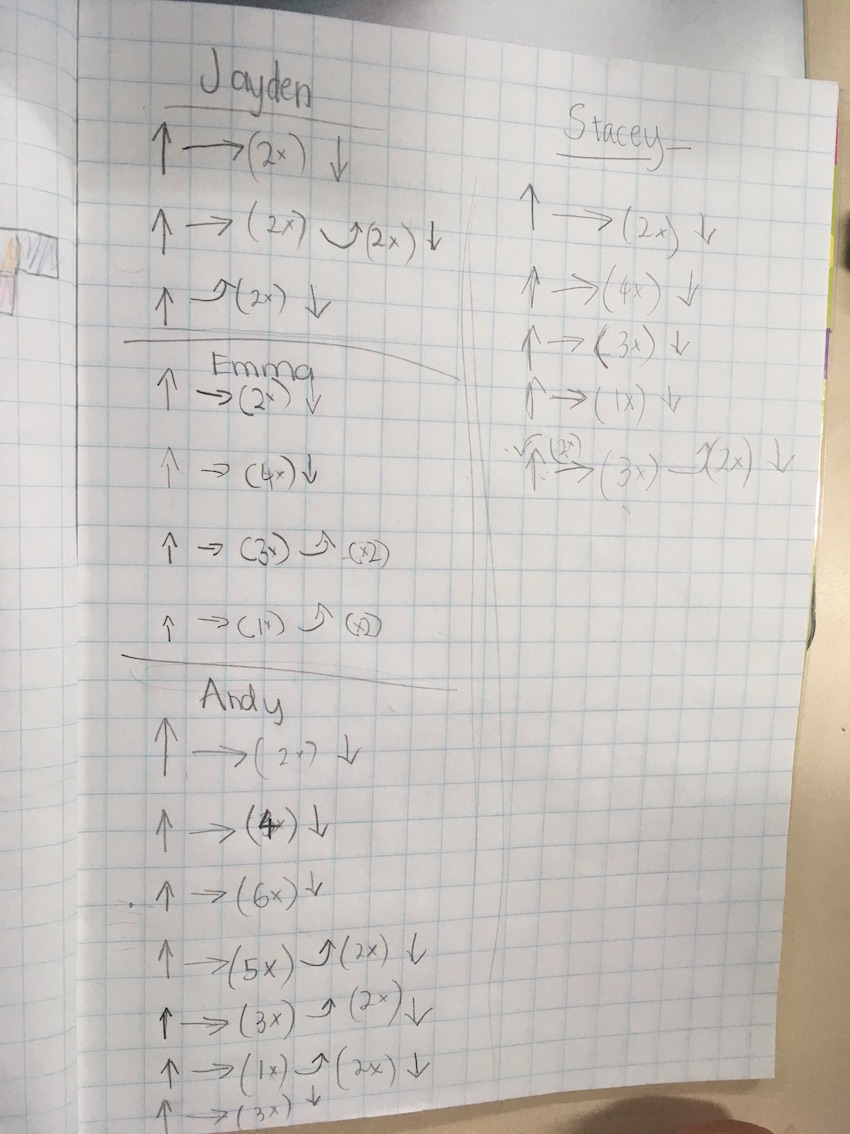 Jayden
↑ → (2x) ↓
↑ → (2x) ⤴ (2x) ↓
↑ ⤴ (2x) ↓
Emma
↑ → (2x) ↓
↑ → (4x) ↓
↑ → (3x) ⤴ (x2)
↑ → (1x) ⤴ (x2)
Andy
↑ → (2x) ↓
↑ → (4x) ↓
↑ → (6x) ↓
↑ → (5x) ⤴ (2x) ↓
↑ → (3x) ⤴ (2x) ↓
↑ → (1x) ⤴ (2x) ↓
↑ → (3x) ↓
Stacey
↑ → (2x) ↓
↑ → (4x) ↓
↑ → (3x) ↓
↑ → (1x) ↓
(2x)
↑ → (3x) ⤴ (2x) ↓